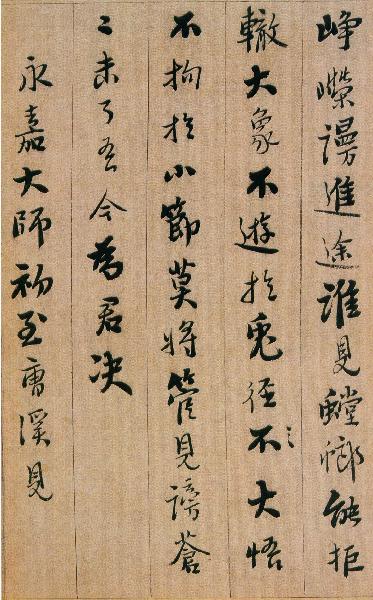 崢嶸謾進途誰見螳螂能拒
轍大象不遊扵兎徑不大悟
不拘扵小節莫將管見謗蒼
〻未了吾今為君决
永嘉大師初至曹溪見